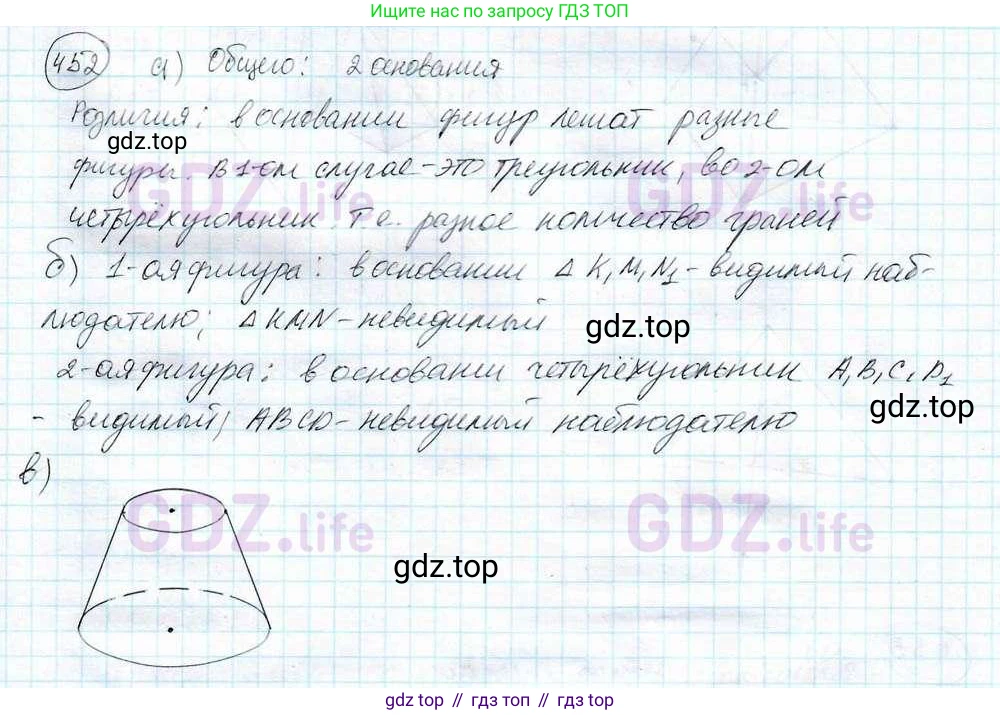 Ищите нас по запросу ГДЗ ТОП
452 а) Общего: 2 основания
Различия: в основании фигур лежат разные
gdz.top
фигуры. В 1-ом случае - это треугольник, во 2-ом
четырёхугольник. Т.е. разное количество граней
б) 1-ая фигура: в основании Δ K₁M₁N₁ - видимый наб-
людателю; Δ KMN - невидимый
gdz.top
2-ая фигура: в основании четырёхугольник A₁B₁C₁D₁
- видимый, ABCD - невидимый наблюдателю
gdz.top
в)
GDZ.life
GDZ.life
GDZ.life
GDZ.life
GDZ.life
GDZ.life
gdz.top
gdz top // гдз топ // gdz.top